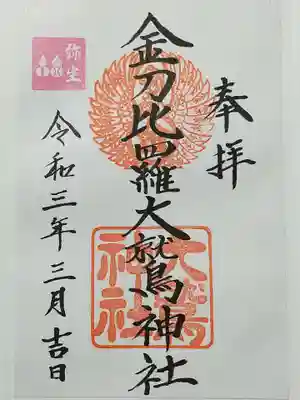 奉拝
金刀比羅大鷲神社
令和三年三月吉日
弥生